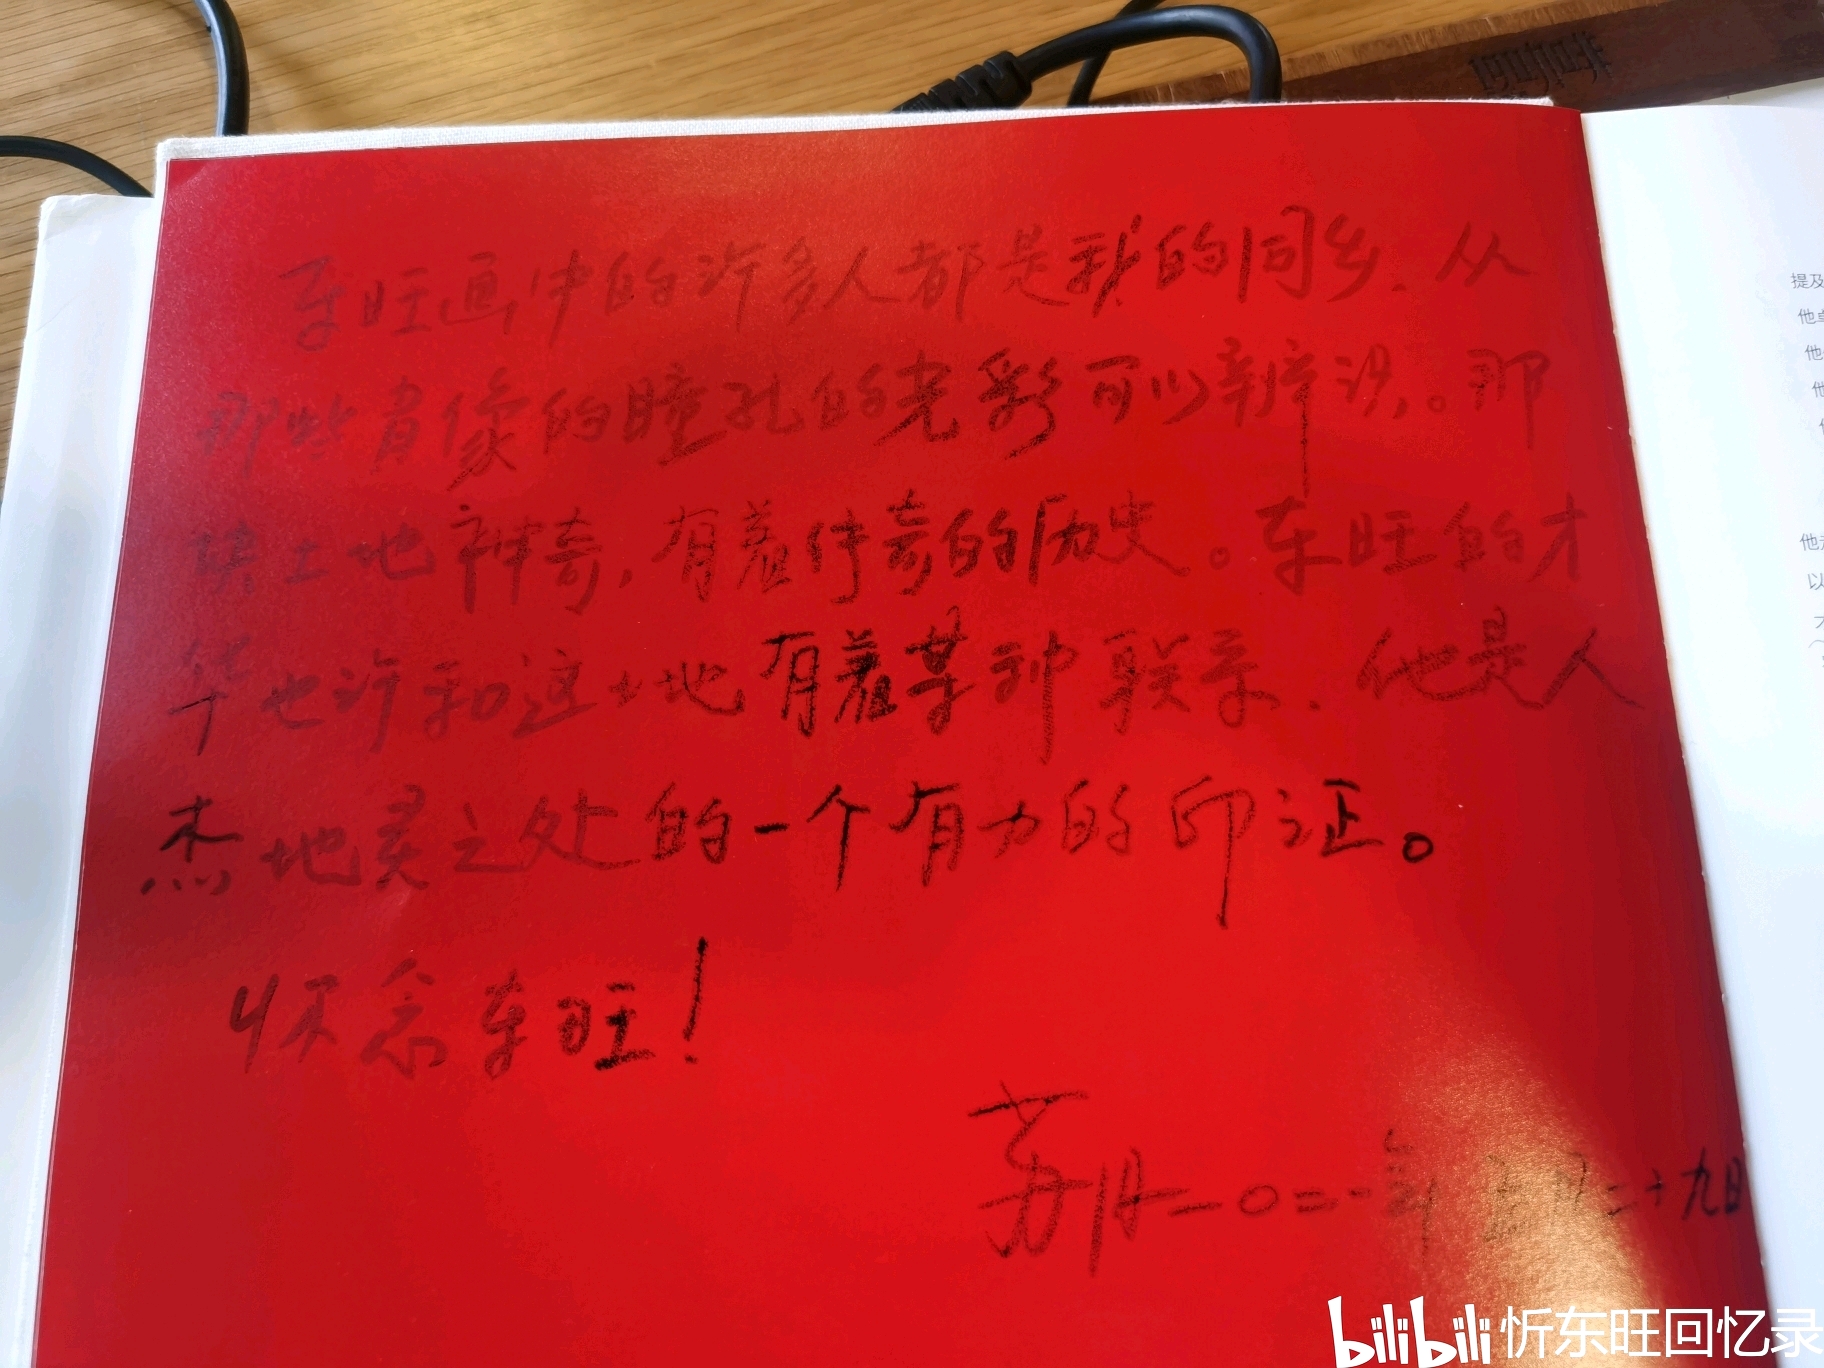 东旺画中的许多人都是我的同乡、从
那些肖像的瞳孔的光彩可以辨识。那
块土地神奇，有着传奇的历史。东旺的才
华也许和这土地有着某种联系、他是人
杰地灵之处的一个有力的印证。
怀念东旺！
苏丹二〇二一年 月二十九日
提及
他
他
他
以
bilibili 忻东旺回忆录